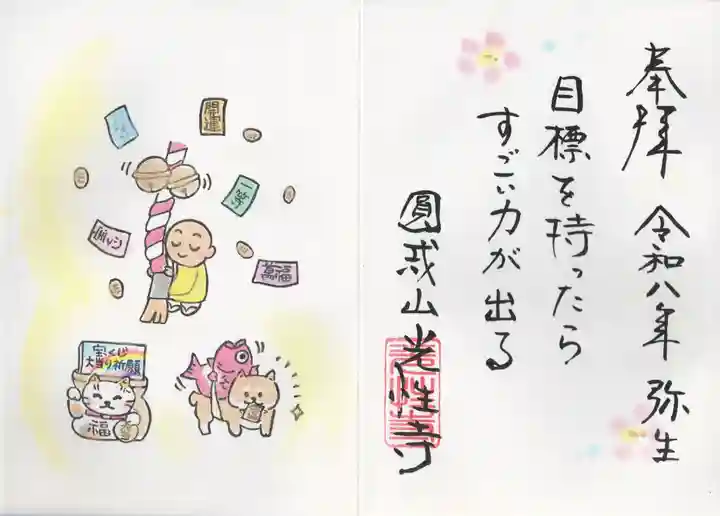 奉拝 令和八年 弥生
目標を持ったら
すごい力が出る
圓戒山 光性寺
開運
一等
萬福
宝くじ
大当り祈願
福